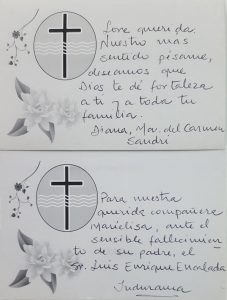 Lore querida:
Nuestro más
sentido pésame,
deseamos que
Dios te dé fortaleza
a ti y a toda tu
familia.
Diana, Ma. del Carmen
Sandri
Para nuestra
querida compañera
Marielisa, ante el
sensible fallecimien
to de su padre, el
Sr. Luis Enrique Encalada
Indurama